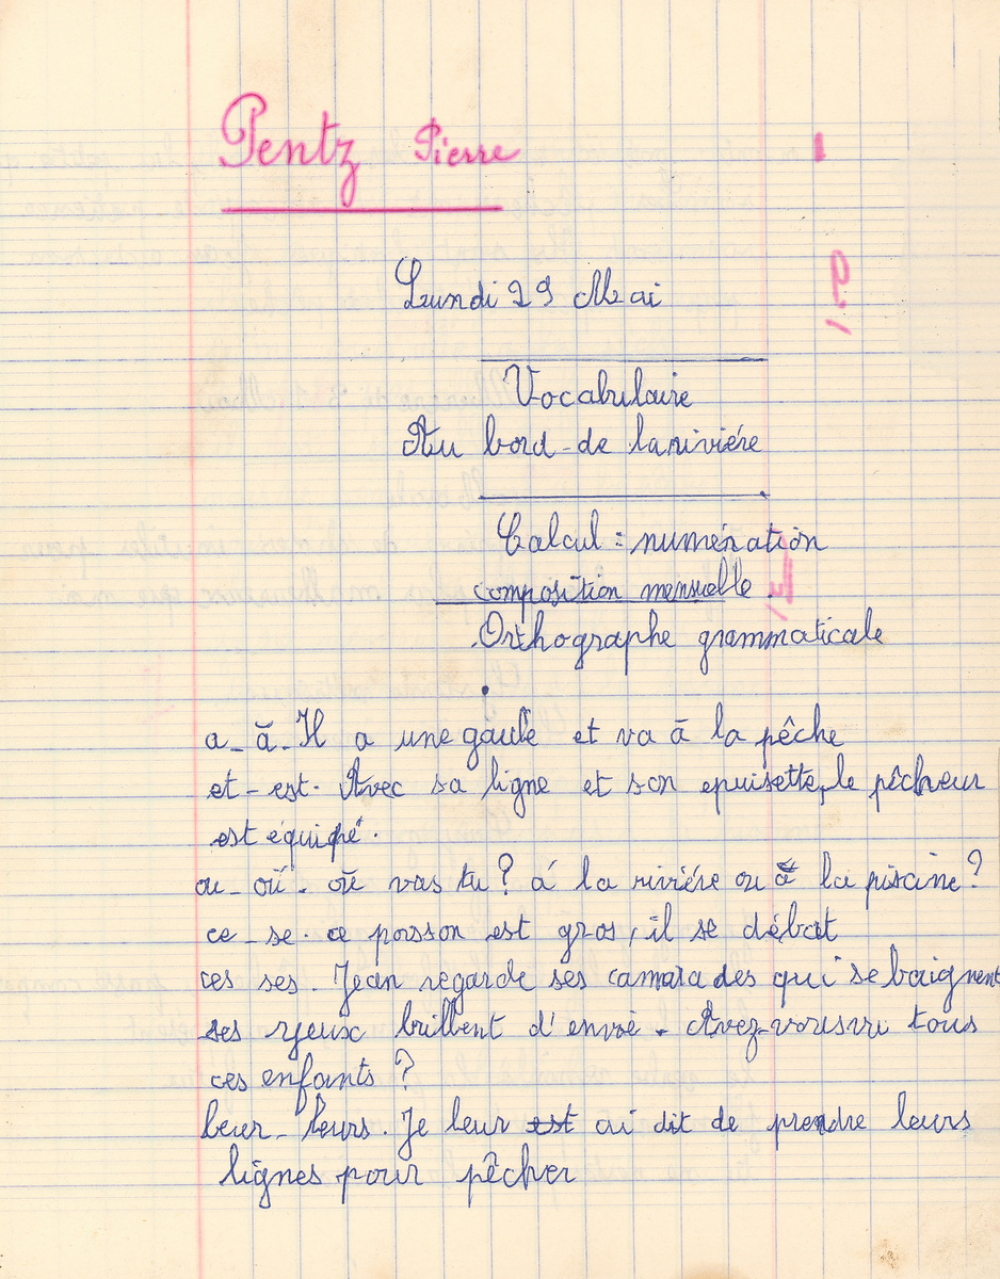 Pentz Pierre
Lundi 29 Mai
Vocabulaire
Au bord de la riviére
Calcul : numération
composition mensuelle.
Orthographe grammaticale
a - à - Il a une gaule et va à la pêche
et - est. Avec sa ligne et son epuisette, le pêcheur
est équipé.
ou - où. où vas tu ? á la riviére ou à la piscine ?
ce - se. ce poisson est gros, il se débat
ces ses. Jean regarde ses camarades qui se baignent
ses yeux brillent d'envie. Avez-vous vu tous
ces enfants ?
leur - leurs. Je leur est ai dit de prendre leurs
lignes pour pêcher